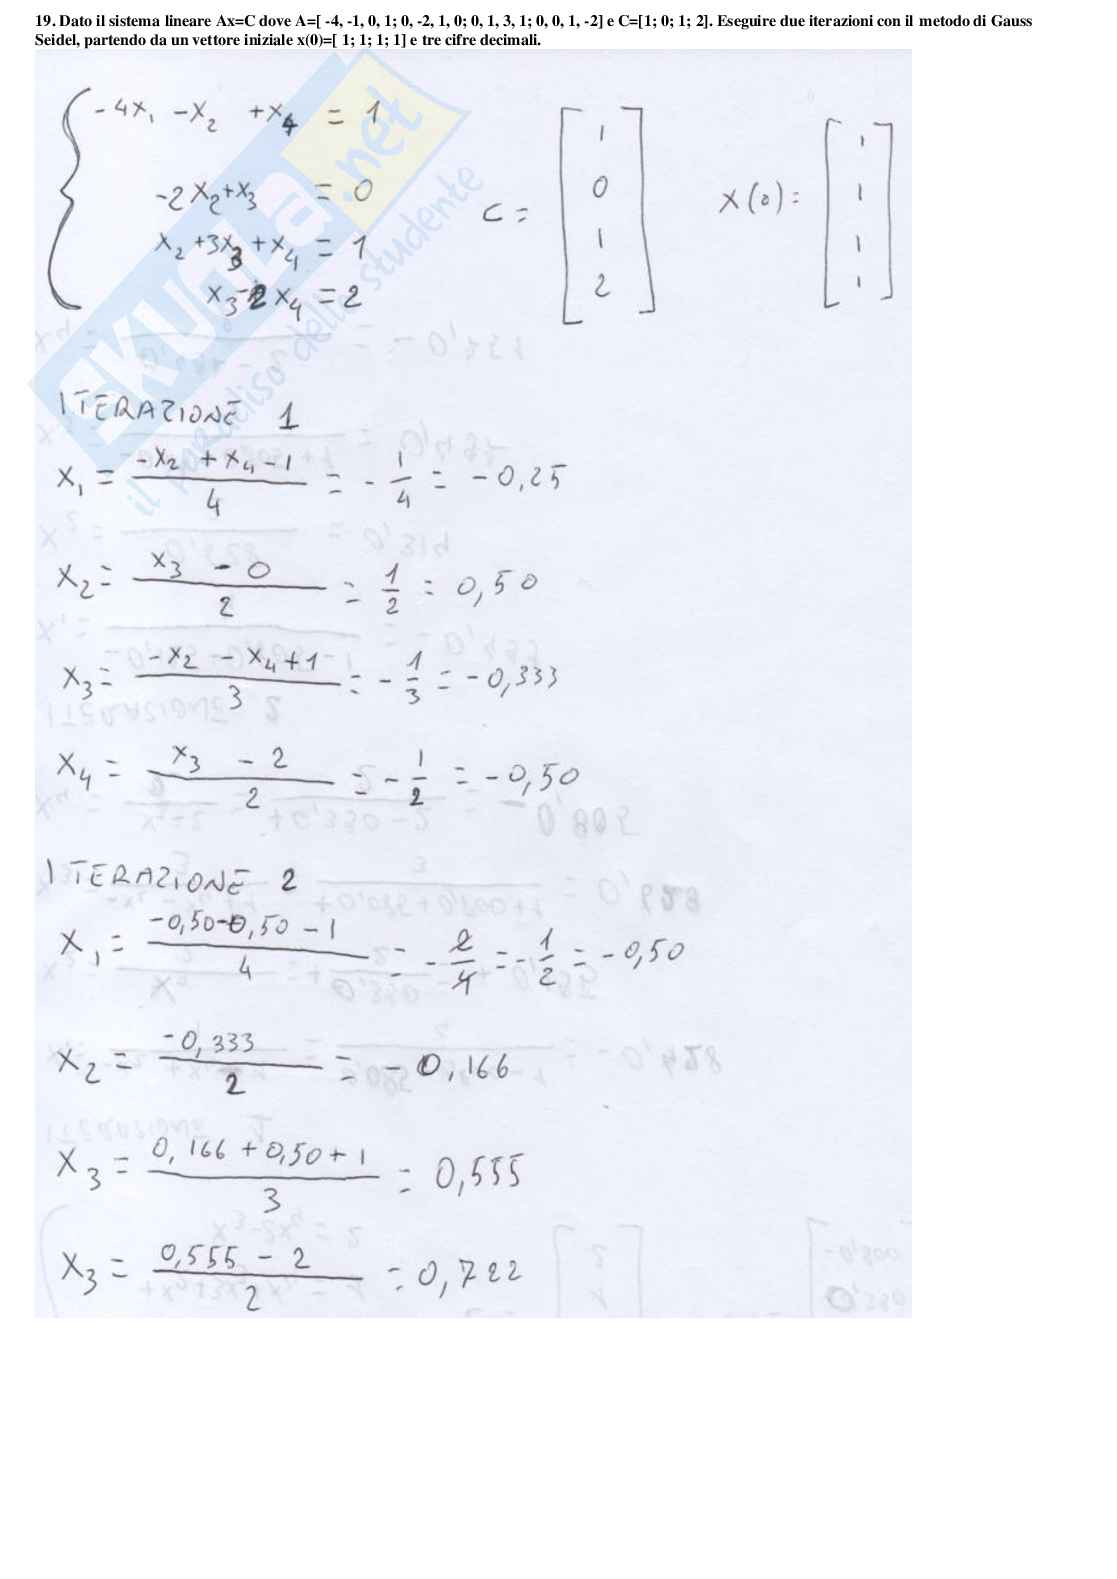 19. Dato il sistema lineare Ax=C dove A=[ -4, -1, 0, 1; 0, -2, 1, 0; 0, 1, 3, 1; 0, 0, 1, -2] e C=[1; 0; 1; 2]. Eseguire due iterazioni con il metodo di Gauss
Seidel, partendo da un vettore iniziale x(0)=[ 1; 1; 1; 1] e tre cifre decimali.
-4x₁ -x₂ +x₄ = 1
-2x₂+x₃ = 0
x₂ +3x₃ +x₄ = 1
x₃-2x₄ = 2
C = [1 0 1 2]
x(0) = [1 1 1 1]
SKUOLA.net
il paradiso dello studente
ITERAZIONE 1
x₁ = (-x₂ + x₄ - 1)/4 = -1/4 = -0,25
x₂ = (x₃ - 0)/2 = 1/2 = 0,50
x₃ = (-x₂ - x₄ + 1)/3 = -1/3 = -0,333
x₄ = (x₃ - 2)/2 = -1/2 = -0,50
ITERAZIONE 2
x₁ = (-0,50-0,50 - 1)/4 = -2/4 = -1/2 = -0,50
x₂ = -0,333/2 = -0,166
x₃ = (0,166 + 0,50 + 1)/3 = 0,555
x₃ = (0,555 - 2)/2 = 0,722